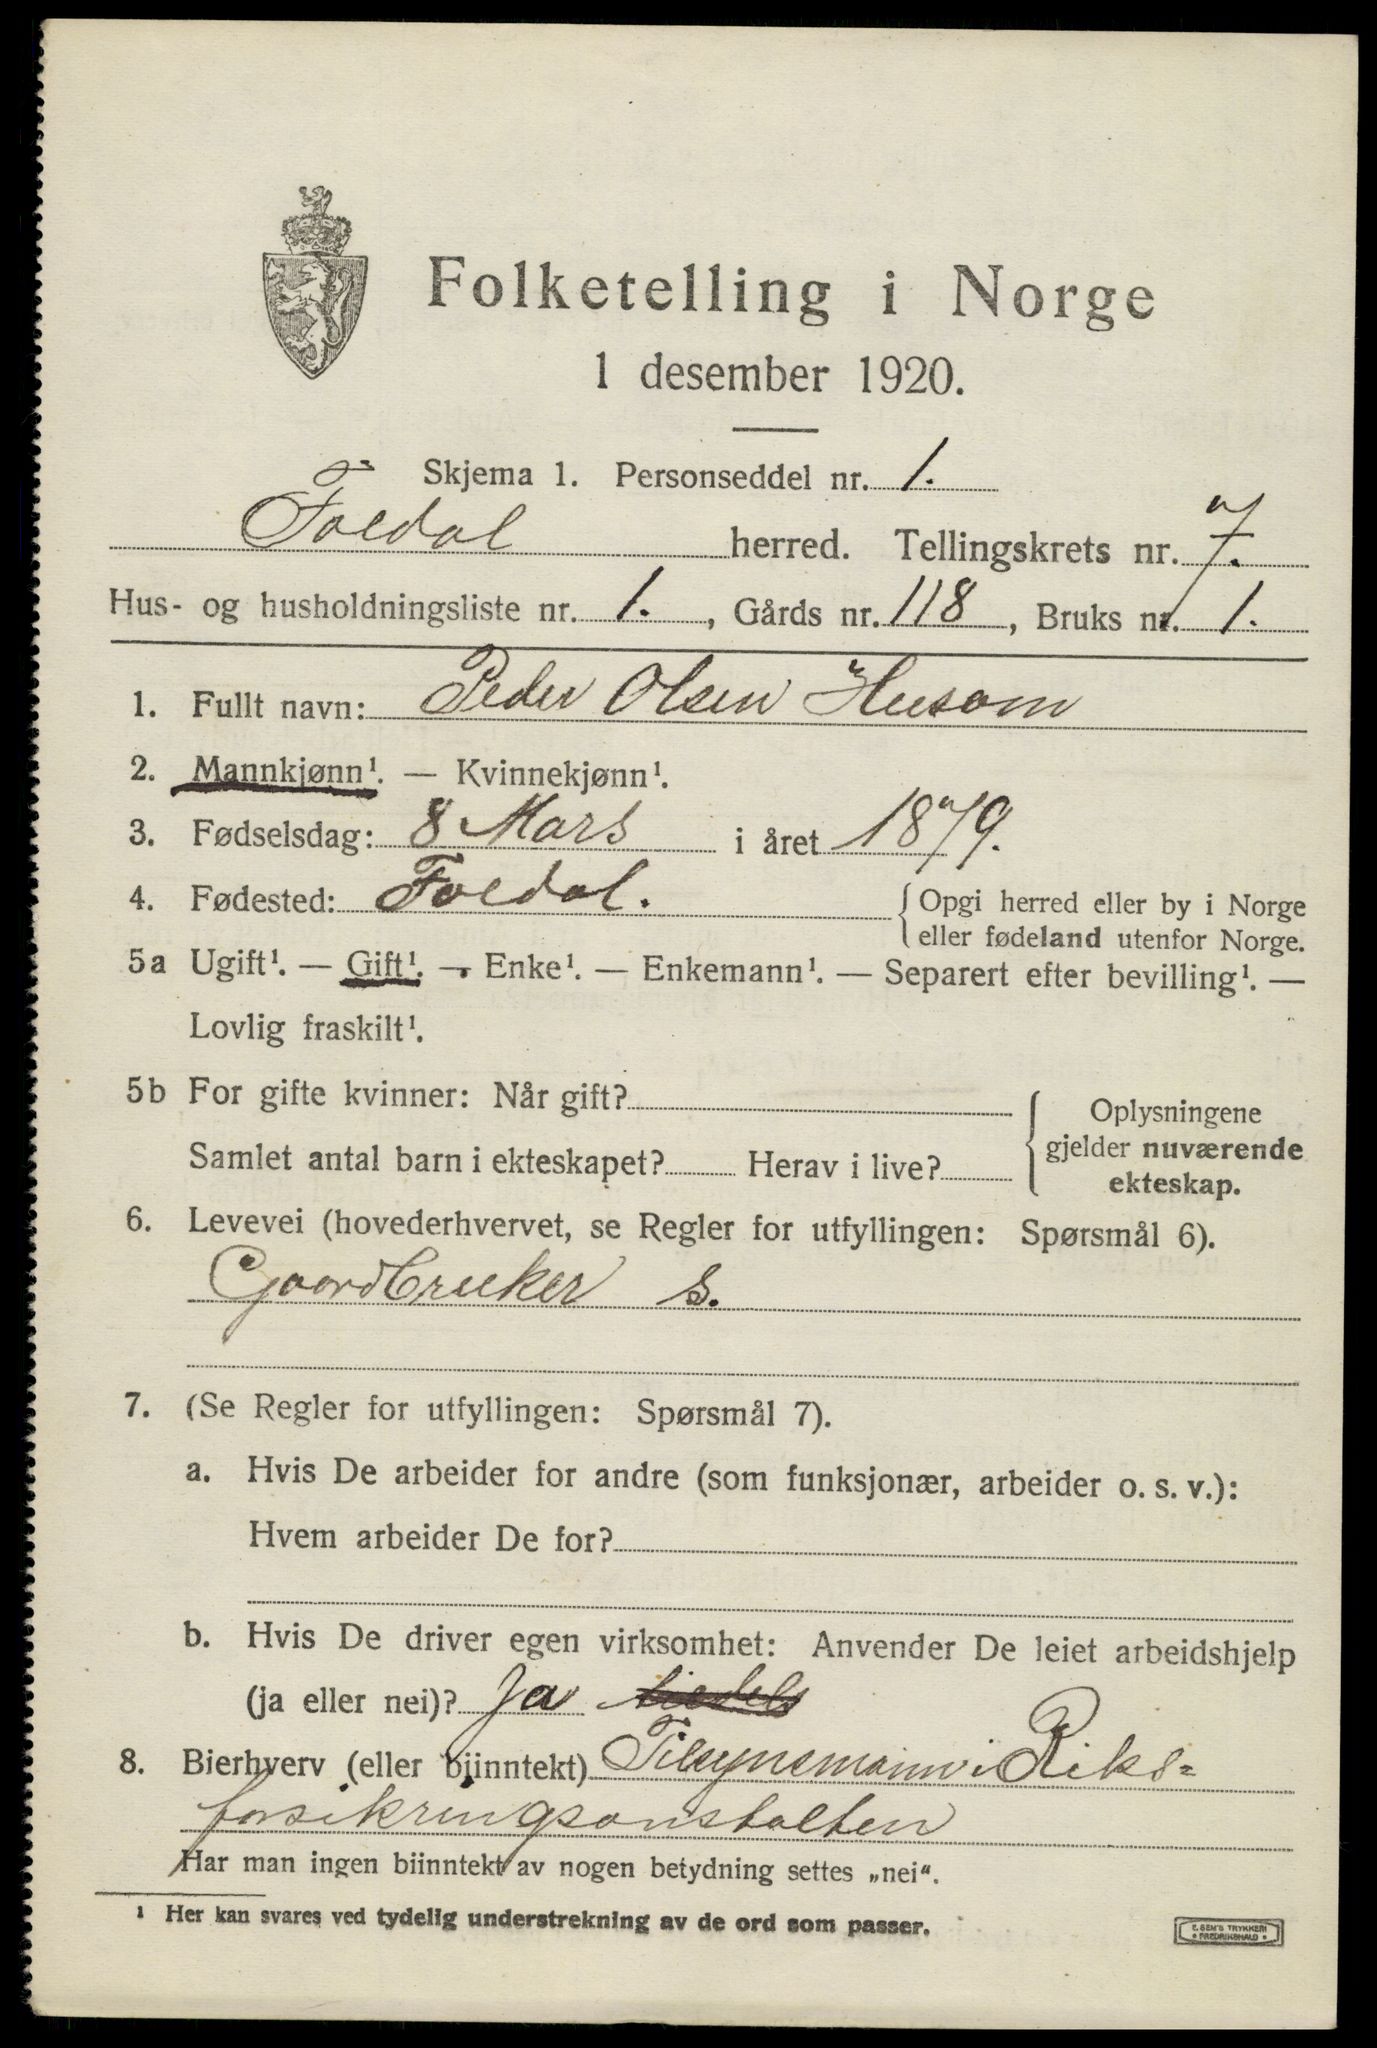 Folketelling i Norge
1 desember 1920.
Skjema 1. Personseddel nr. 1.
Foldal herred. Tellingskrets nr. 7.
Hus- og husholdningsliste nr. 1., Gårds nr. 118, Bruks nr. 1.
1. Fullt navn: Peder Olsen Husom
2. Mannkjønn¹. — Kvinnekjønn¹.
3. Fødselsdag: 8 Mars i året 1879.
4. Fødested: Foldal. { Opgi herred eller by i Norge
eller fødeland utenfor Norge.
5a Ugift¹. — Gift¹. — Enke¹. — Enkemann¹. — Separert efter bevilling¹. —
Lovlig fraskilt¹.
5b For gifte kvinner: Når gift?
Samlet antal barn i ekteskapet? Herav i live?
{ Oplysningene
gjelder nuværende
ekteskap.
6. Levevei (hovederhvervet, se Regler for utfyllingen: Spørsmål 6).
Gaardbruker s.
7. (Se Regler for utfyllingen: Spørsmål 7).
a. Hvis De arbeider for andre (som funksjonær, arbeider o. s. v.):
Hvem arbeider De for?
b. Hvis De driver egen virksomhet: Anvender De leiet arbeidshjelp
(ja eller nei)? Ja
8. Bierhverv (eller biinntekt) Tilsynsmann i Riks=
forsikringsanstalten
Har man ingen biinntekt av nogen betydning settes „nei“.
¹ Her kan svares ved tydelig understrekning av de ord som passer.
E. SEM'S TRYKKERI
• FREDRIKSHALD •